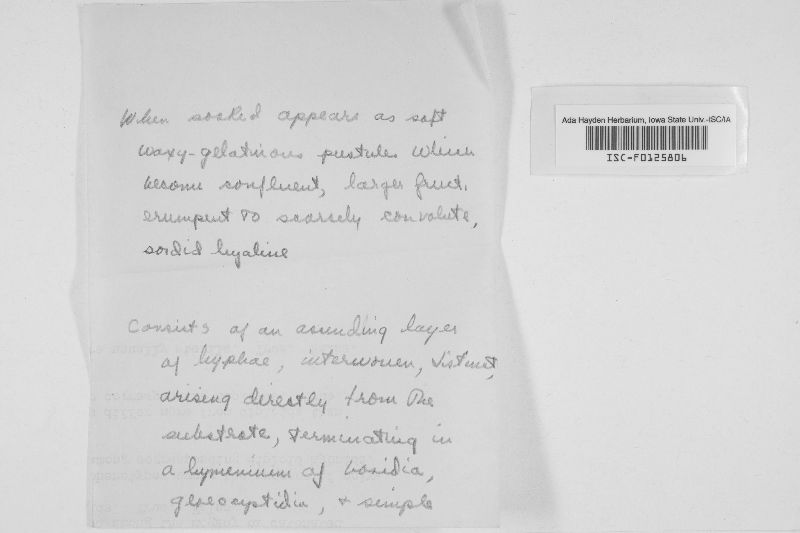 When soaked appears as soft
waxy-gelatinous pustules which
become confluent, larger fruct.
erumpent to scarcely convolute,
sordid hyaline
Consists of an ascending layer
of hyphae, interwoven, distinct,
arising directly from the
substrate, terminating in
a hymenium of basidia,
gloeocystidia, + simple
Ada Hayden Herbarium, Iowa State Univ.-ISC/IA
ISC-F0125806